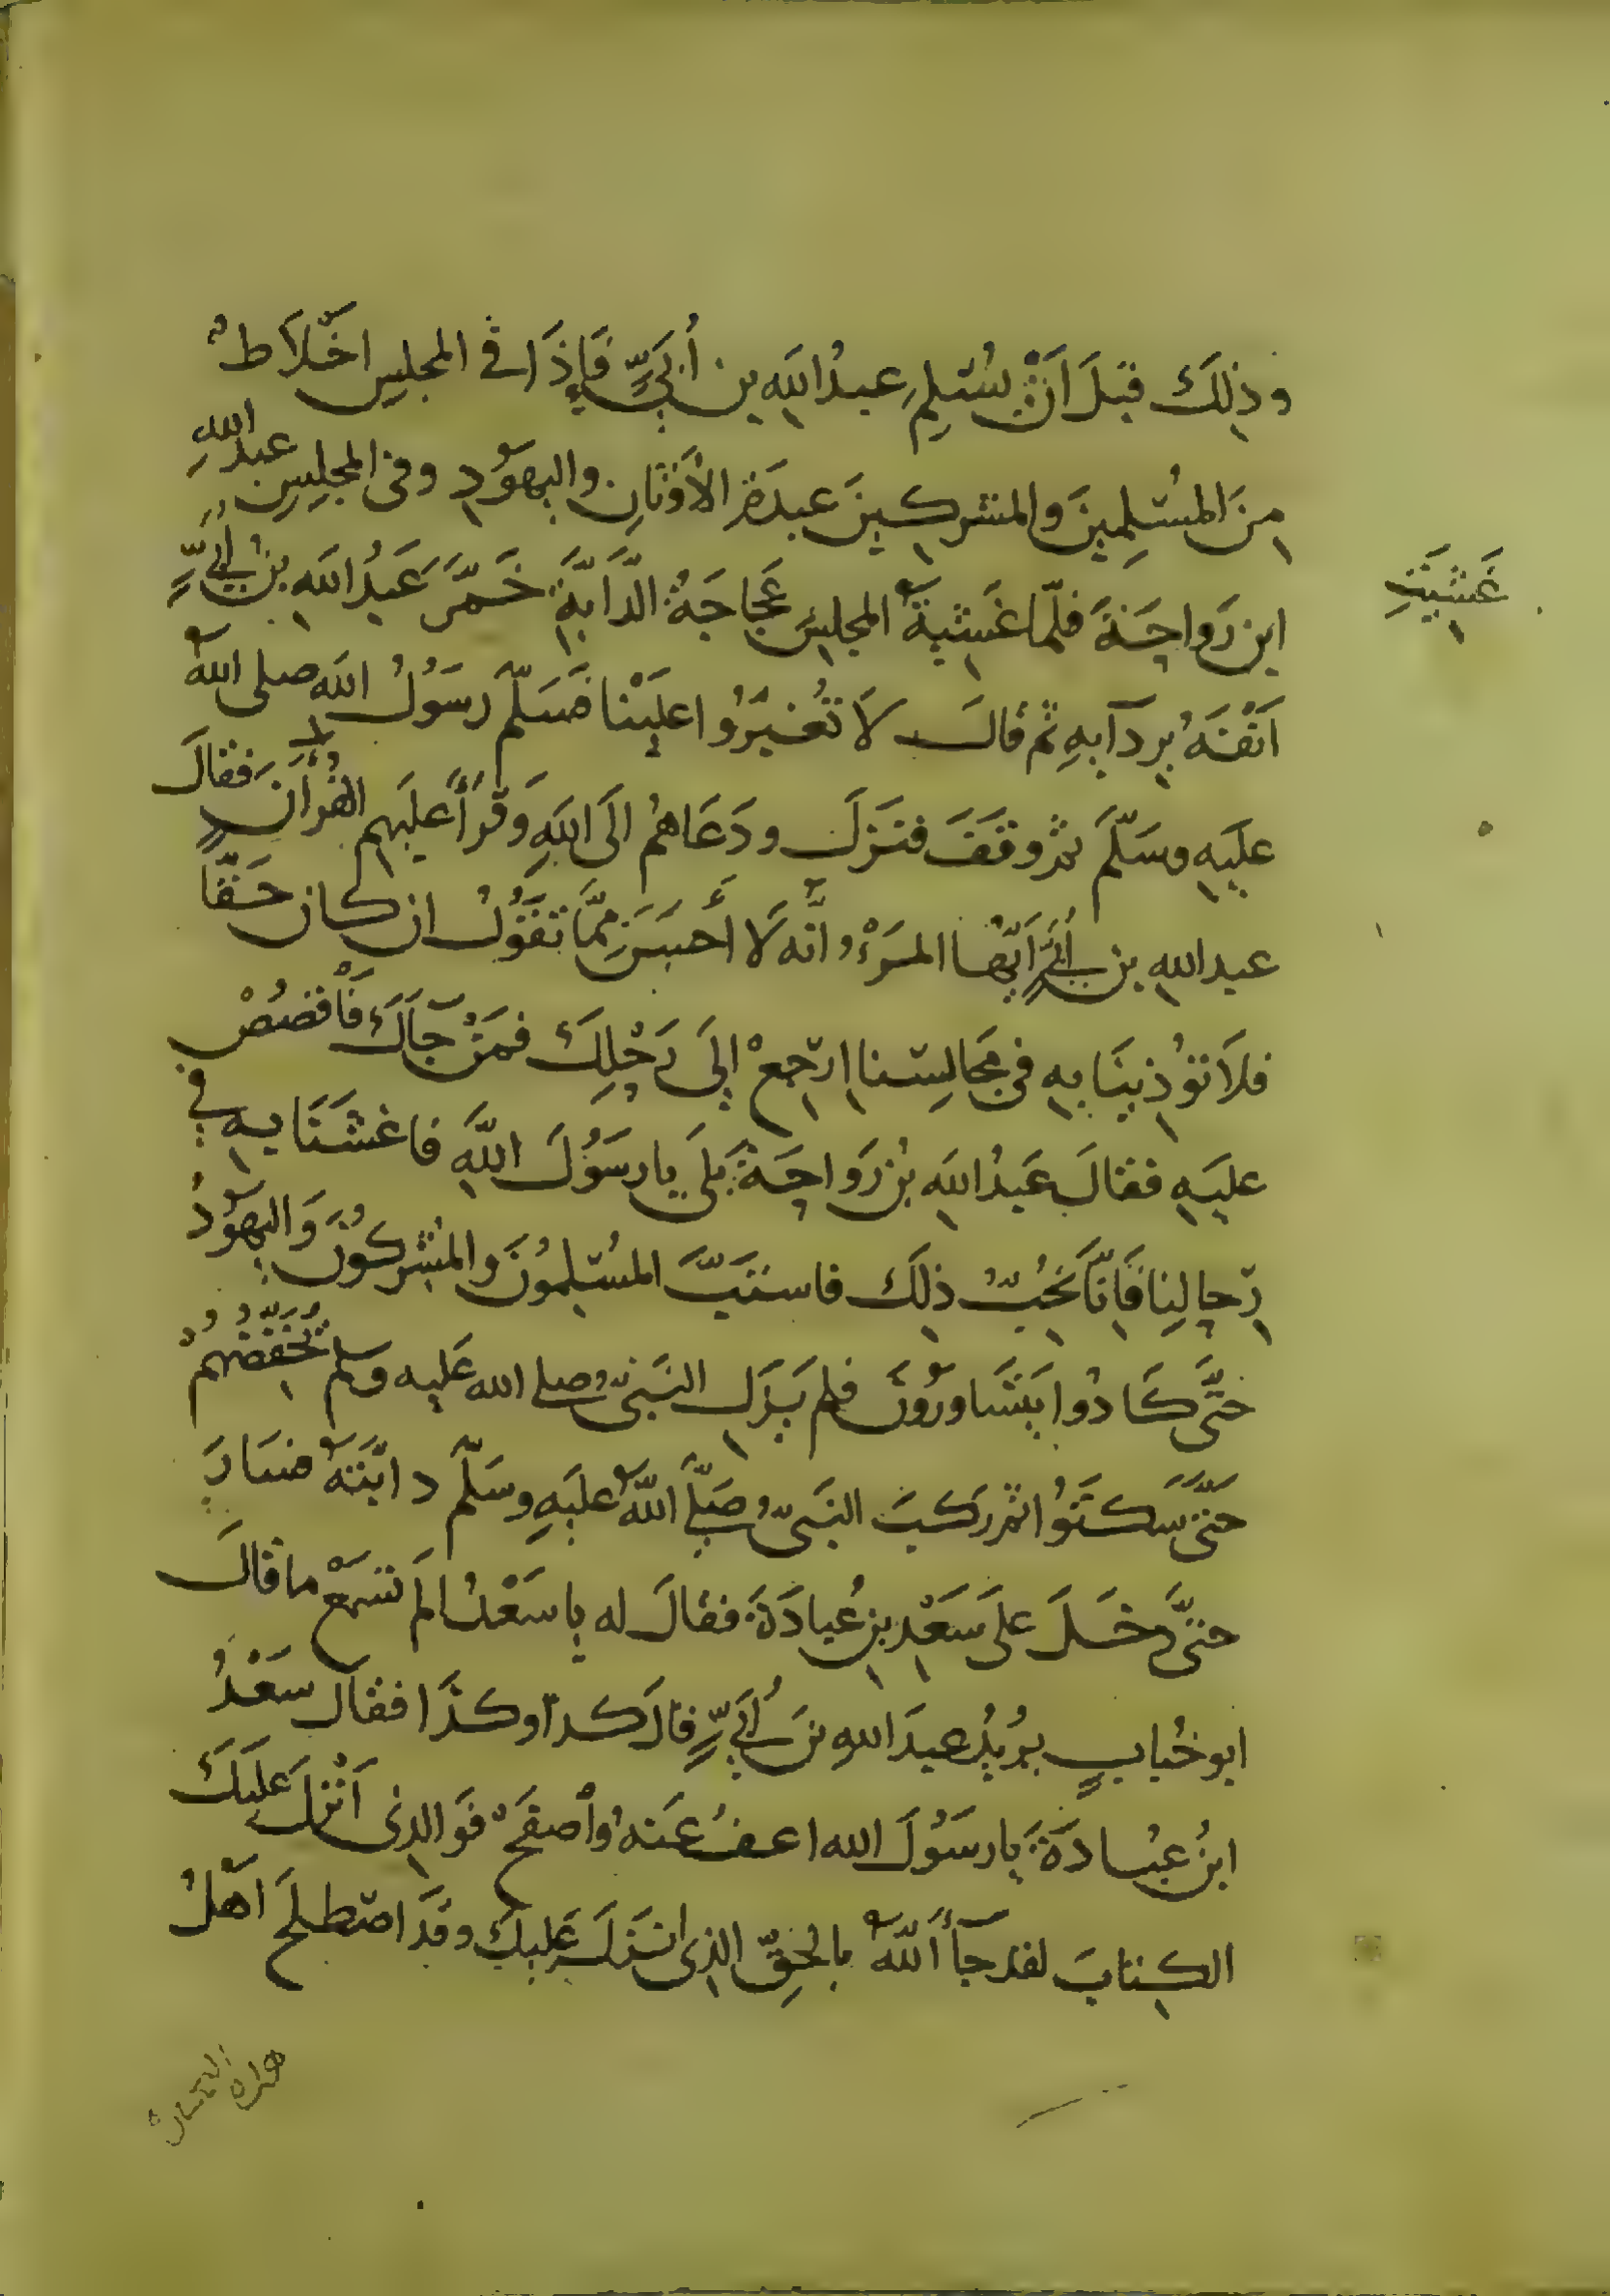 وذلك قبل أن يسلم عبد الله بن أبي فإذا في المجلس اخلاط
من المسلمين والمشركين عبدة الأوثان واليهود وفي المجلس عبد الله
ابن رواحة فلما غشية المجلس عجاجة الدابة خمر عبد الله بن أبي
غشيت
أنفه بردآيه ثم قال لا تغبروا علينا فسلم رسول الله صلى الله
عليه وسلم ثم وقف فنزل ودعاهم الى الله وقرأ عليهم القرآن فقال
عبد الله بن أبي أيها المرء انه لا أحسن مما تقول ان كان حقا
فلا تؤذينا به في مجالسنا ارجع إلى رحلك فمن جآك فأقصص
عليه فقال عبد الله بن رواحة بلى يا رسول الله فاغشنا به في
مجالسنا فانا نحب ذلك فاستب المسلمون والمشركون واليهود
حتى كادوا يتساورون فلم يزل النبي صلى الله عليه وسلم يخفضهم
حتى سكتوا ثم ركب النبي صلى الله عليه وسلم دابته فسار
حتى دخل على سعد بن عبادة فقال له يا سعد الم تسمع ما قال
ابو حباب يريد عبد الله بن أبي قال كذا وكذا فقال سعد
ابن عبادة يا رسول الله اعف عنه وأصفح فو الذي أنزل عليك
الكتاب لقد جآء الله بالحق الذي انزل عليك وقد اصطلح اهل
هذه